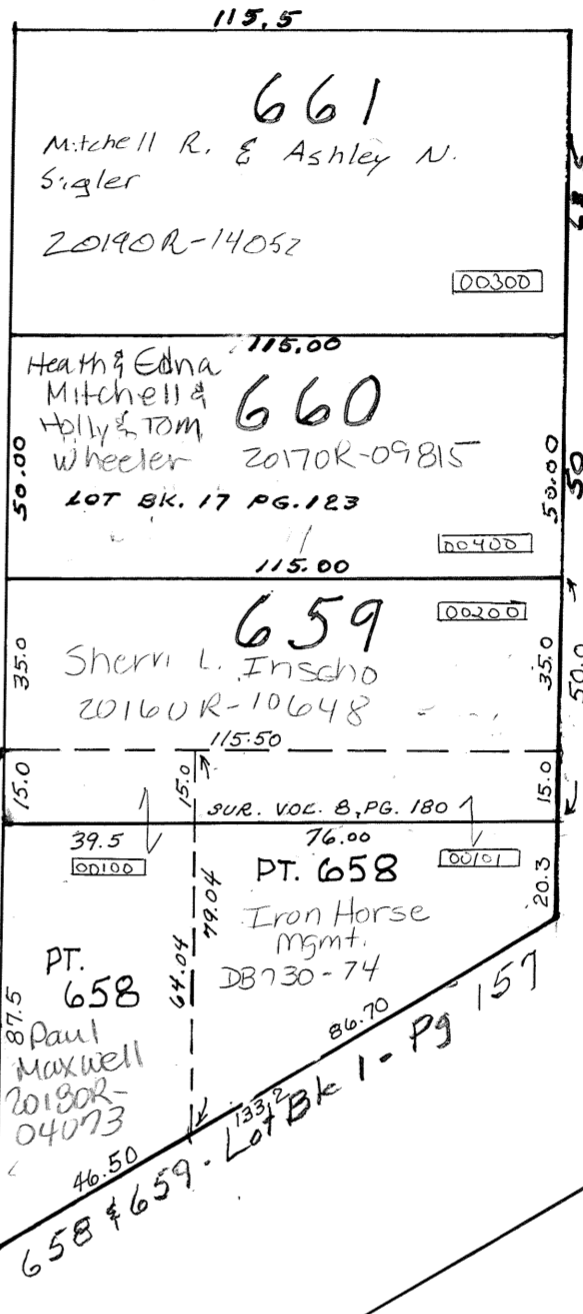 115.5
661
Mitchell R. & Ashley N.
Sigler
2019OR-14052
00300
115.00
Heath & Edna
Mitchell &
Holly & Tom
Wheeler
660
2017OR-09815
50.00
50.00
50
LOT BK. 17 PG. 123
00400
115.00
659
00200
35.0
Sherri L. Inscho
2016OR-10648
35.0
50.0
115.50
15.0
15.0
15.0
SUR. VOL. 8, PG. 180
39.5
76.00
00100
PT. 658
00101
20.3
79.04
64.04
Iron Horse
Mgmt.
DB730-74
PT.
658
87.5
Paul
Maxwell
2018OR-
04073
86.70
133.2
46.50
658 & 659 - Lot Bk 1 - Pg 157